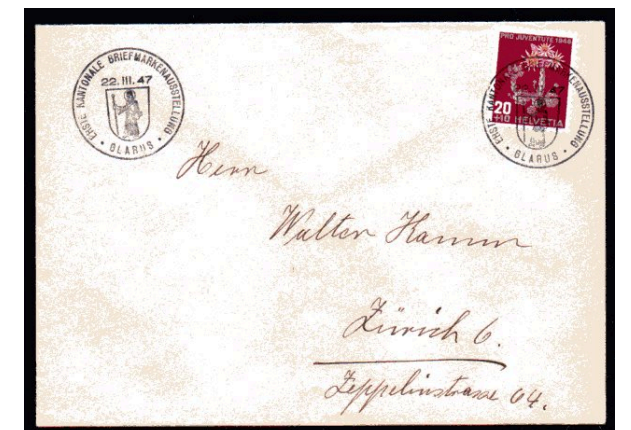 ERSTE KANTONALE BRIEFMARKENAUSSTELLUNG
22. III. 47
• GLARUS •
PRO JUVENTUTE 1946
20
+10 HELVETIA
ERSTE KANTONALE BRIEFMARKENAUSSTELLUNG
• GLARUS •
Herrn
Walter Hamm
Zürich 6.
Zeppelinstrasse 64.